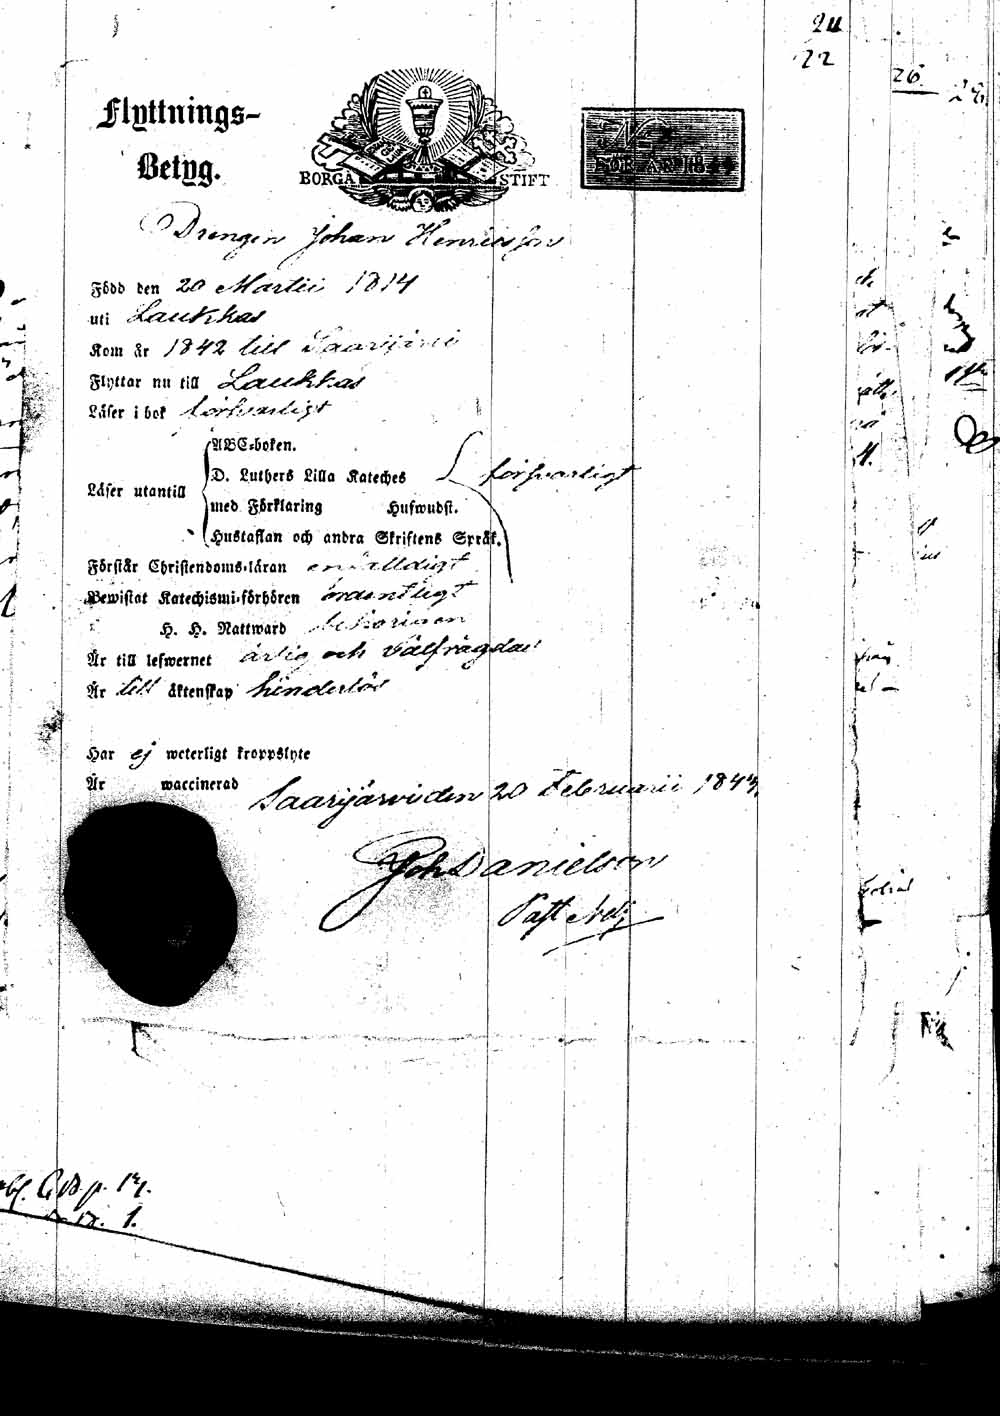 24
22
26
Flyttnings-
Betyg.
BORGÅ STIFT
FÖR ÅR 1844
Drengen Johan Henricsson
Född den 20 Martii 1814
uti Laukkas
Kom år 1842 till Saarijärvi
Flyttar nu till Laukkas
Läser i bok försvarligt
Läser utantill
ABC-boken.
D. Luthers Lilla Kateches
med Förklaring Hufwudst.
Hustaflan och andra Skriftens Språk.
försvarligt
Förstår Christendoms-läran enfalldigt
Bewistat Katechismi-förhören ordentligt
H. H. Nattward behörigen
Är till lefwernet ärlig och välfrägdad
Är till äktenskap hinderlös
Har ej weterligt kroppslyte
Är waccinerad
Saarijärvi den 20 Februarii
Joh Danielson
Past Adj
p. 14.
1.